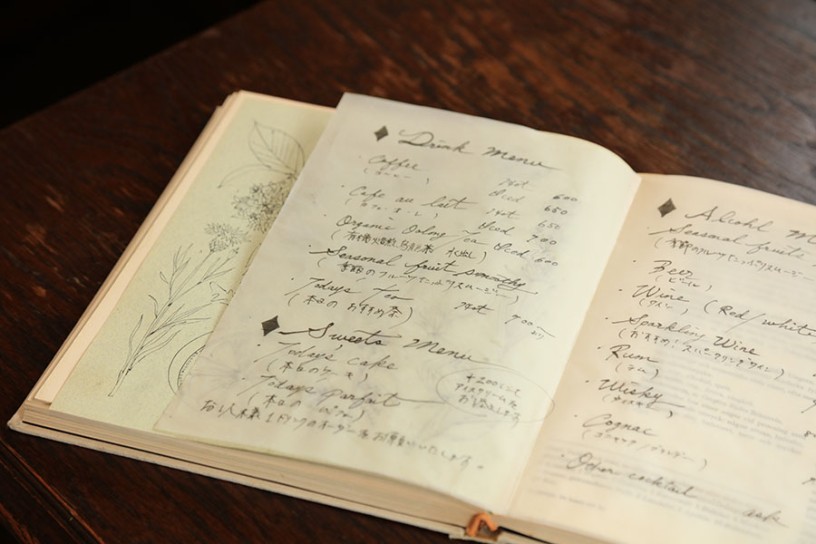 Drink Menu
Coffee Hot 600
(コーヒー) Iced 650
Cafe au lait Hot 650
(カフェ・オ・レ) Iced 700
Organic Oolong Tea Iced 600
Seasonal fruit smoothy
(季節のフルーツ
Todays Tea Hot 700より
(本日のおすすめ茶)
Sweets Menu
Today's cake
(本日のケーキ)
Todays parfait
(本日のパフェ)
+200にて
アイスクリームを
お一人様1ドリンクのオーダーをお願いいたします。
Alcohl
Seasonal fruits
(季節のフルーツ
Beer
(ビール)
Wine (Red/white
(ワイン)
Sparkling Wine
(おすすめ スパークリングワイン)
Rum
(ラム)
Wisky
(ウイスキー)
Cognac
(コニャック/ブランデー)
Other cocktail ask